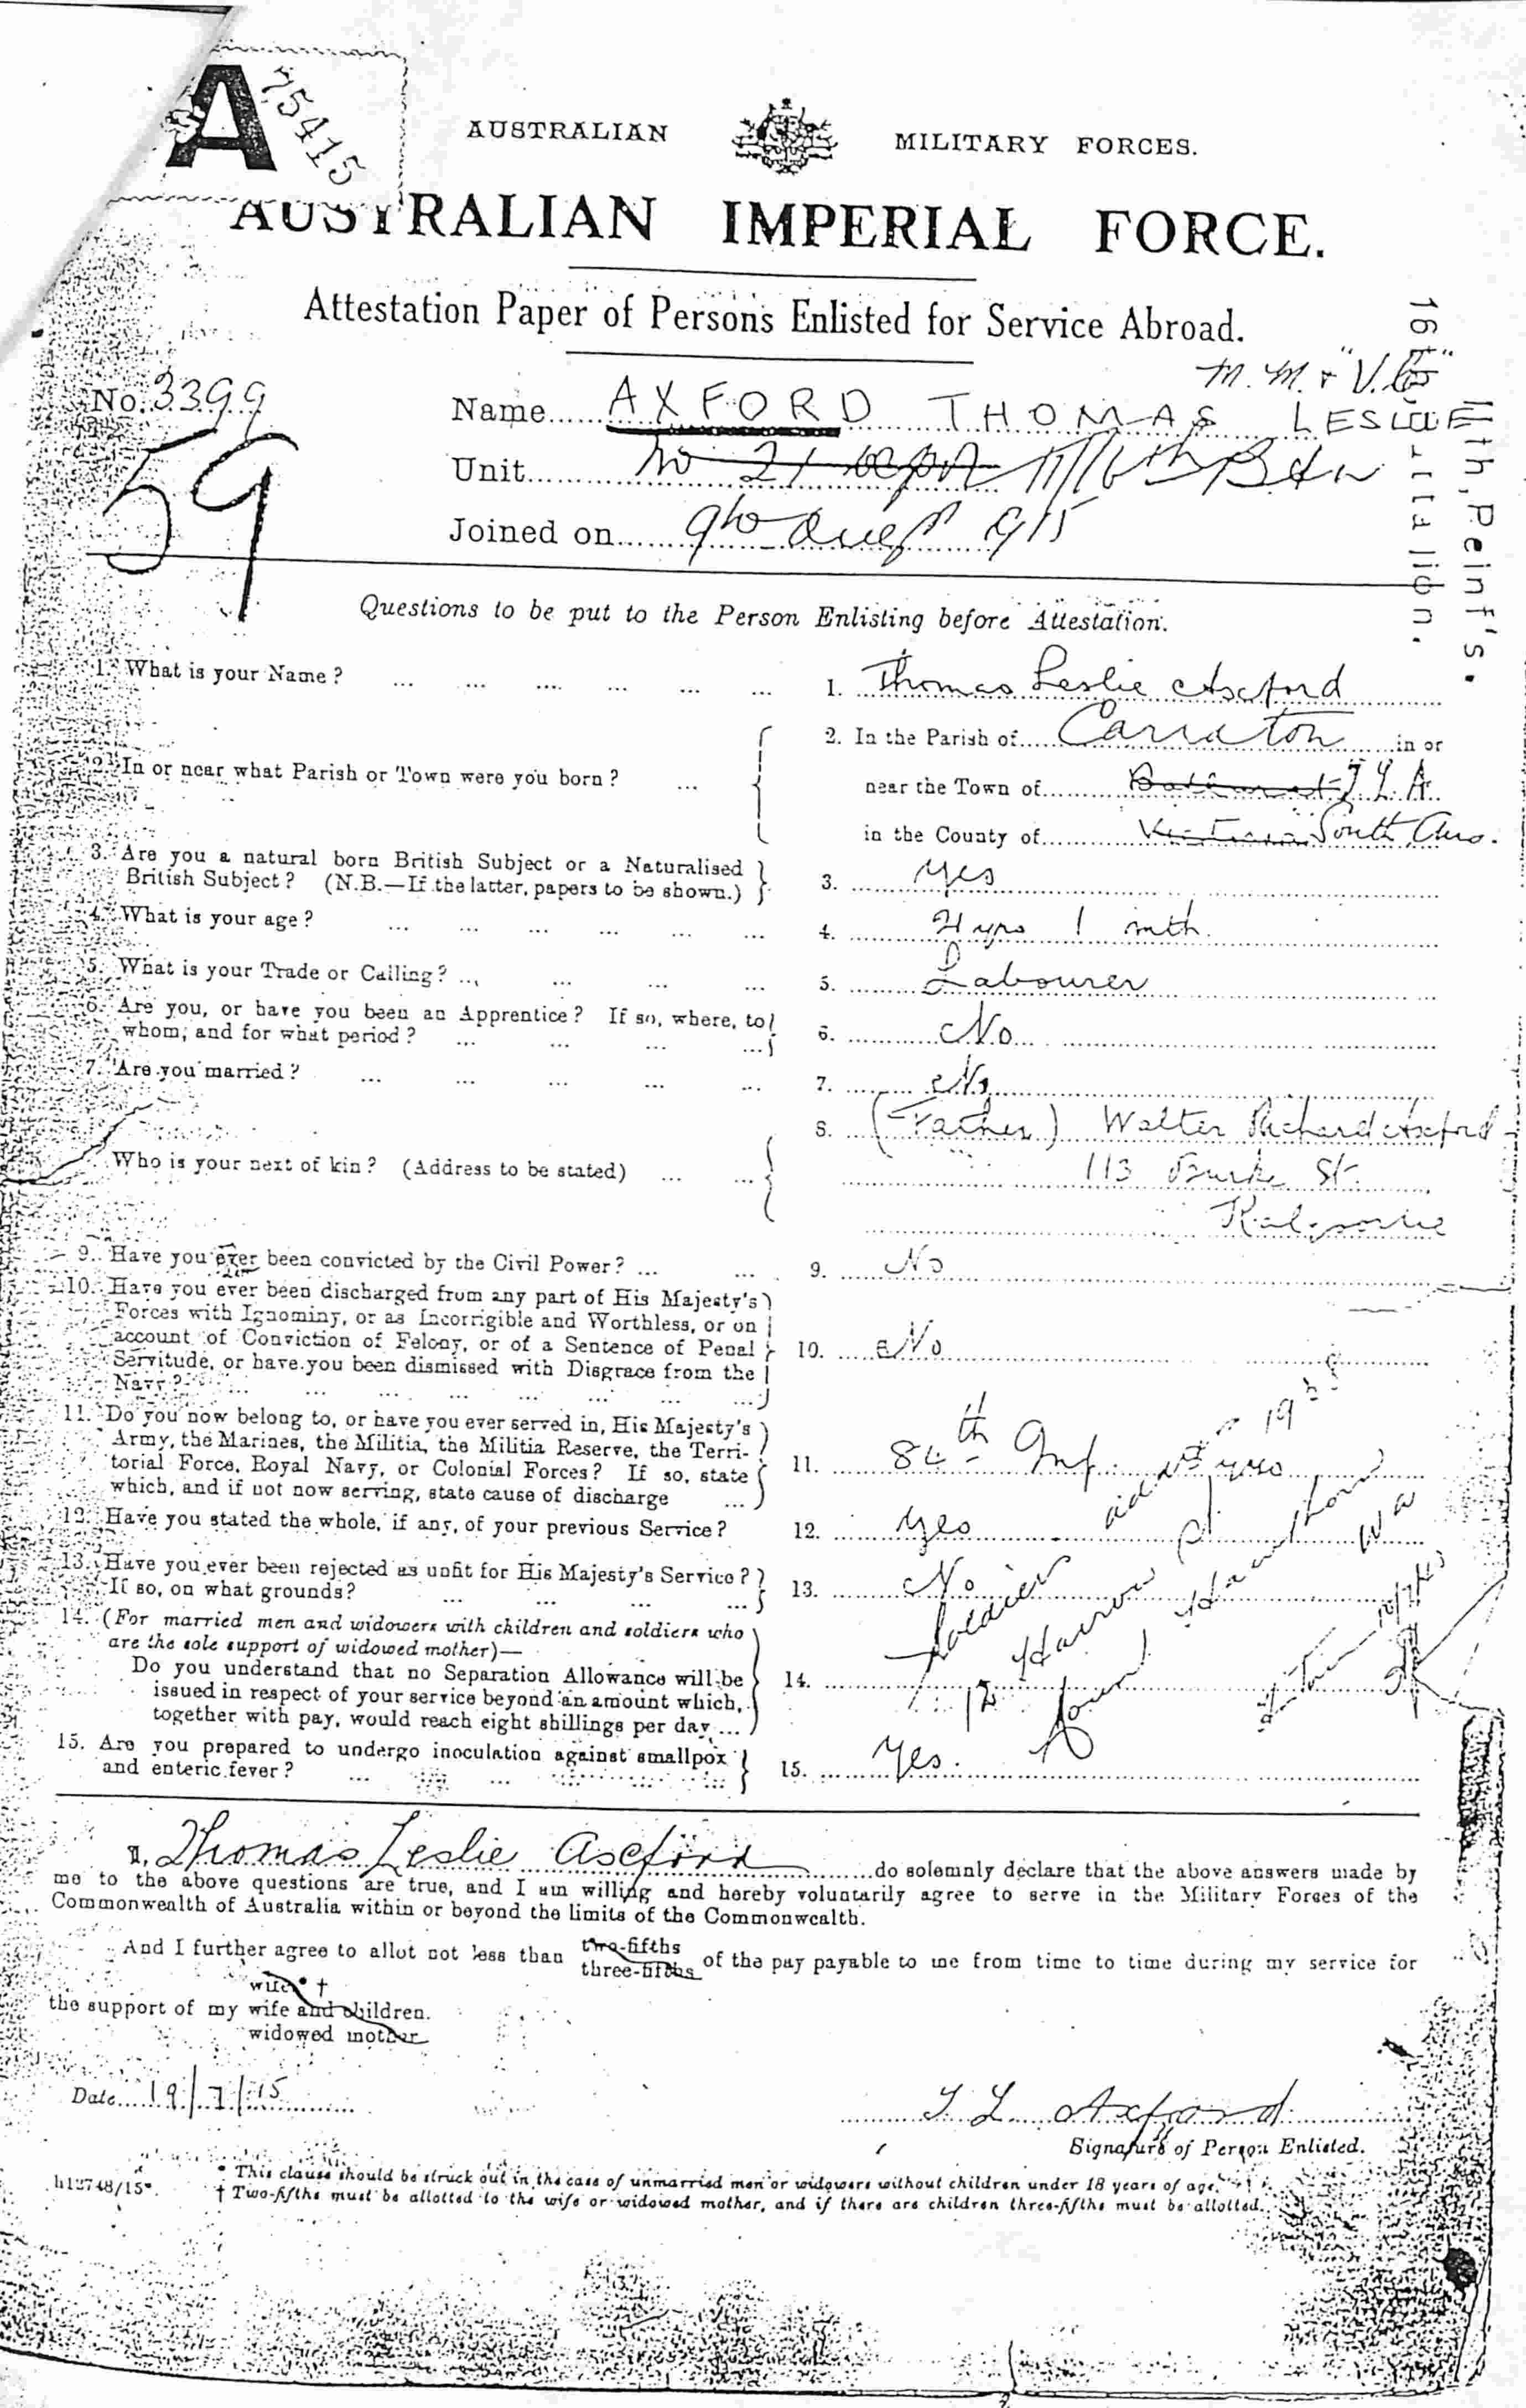 A
75415
AUSTRALIAN MILITARY FORCES.
AUSTRALIAN IMPERIAL FORCE.
Attestation Paper of Persons Enlisted for Service Abroad.
M.M. & "V.C."
No. 3399
Name AXFORD THOMAS LESLIE
59
Unit No 21 Depot 11/16th Btn
Joined on 9th Augt 1915
11th. Reinf's.
16th Battalion.
Questions to be put to the Person Enlisting before Attestation.
1. What is your Name? ... ... ... ... ... ... 1. Thomas Leslie Axford
2. In or near what Parish or Town were you born? ... 2. In the Parish of Carrieton in or
near the Town of T.L.A.
in the County of Victoria South Aus.
3. Are you a natural born British Subject or a Naturalised
British Subject? (N.B.—If the latter, papers to be shown.) 3. Yes
4. What is your age? ... ... ... ... ... ... 4. 21 yrs 1 mth.
5. What is your Trade or Calling? ... ... ... ... 5. Labourer
6. Are you, or have you been an Apprentice? If so, where, to
whom, and for what period? ... ... ... ... 6. No
7. Are you married? ... ... ... ... ... 7. No
8. (Father) Walter Richard Axford
Who is your next of kin? (Address to be stated) ... ... 113 Burke St.
Kalgoorlie
9. Have you ever been convicted by the Civil Power? ... ... 9. No
10. Have you ever been discharged from any part of His Majesty's
Forces with Ignominy, or as Incorrigible and Worthless, or on
account of Conviction of Felony, or of a Sentence of Penal
Servitude, or have you been dismissed with Disgrace from the
Navy? ... ... ... ... ... ... ... 10. No
11. Do you now belong to, or have you ever served in, His Majesty's
Army, the Marines, the Militia, the Militia Reserve, the Terri-
torial Force, Royal Navy, or Colonial Forces? If so, state
which, and if not now serving, state cause of discharge ... 11. 84th Inf. yrs
12. Have you stated the whole, if any, of your previous Service? 12. Yes
13. Have you ever been rejected as unfit for His Majesty's Service?
If so, on what grounds? ... ... ... 13. No
14. (For married men and widowers with children and soldiers who
are the sole support of widowed mother)—
Do you understand that no Separation Allowance will be
issued in respect of your service beyond an amount which,
together with pay, would reach eight shillings per day ... 14.
15. Are you prepared to undergo inoculation against smallpox
and enteric fever? ... ... ... ... 15. Yes.
Soldier
Harrow
Hawthorn
I, Thomas Leslie Axford do solemnly declare that the above answers made by
me to the above questions are true, and I am willing and hereby voluntarily agree to serve in the Military Forces of the
Commonwealth of Australia within or beyond the limits of the Commonwealth.
And I further agree to allot not less than two-fifths three-fifths of the pay payable to me from time to time during my service for
wife* †
the support of my wife and children.
widowed mother
Date 19/7/15
T L Axford
Signature of Person Enlisted.
* This clause should be struck out in the case of unmarried men or widowers without children under 18 years of age.
h12748/15*.
† Two-fifths must be allotted to the wife or widowed mother, and if there are children three-fifths must be allotted.